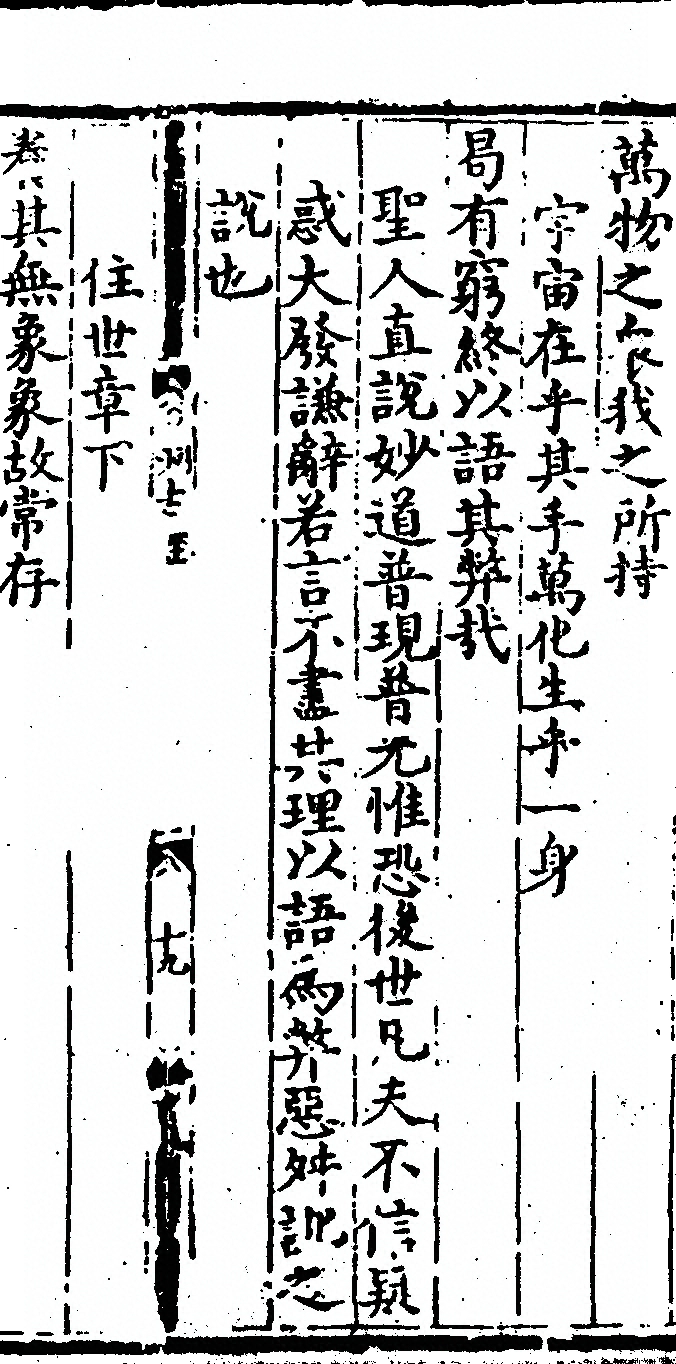 萬物之哀我之所持
宇宙在乎其手萬化生乎一身
曷有窮終以語其弊哉
聖人直說妙道普現普光惟恐後世凡夫不信疑
惑大發謙辭若言不盡其理以語爲弊惡舛訛之
說也
十九
住世章下
養其無象象故常存